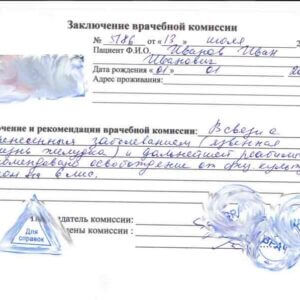 Заключение врачебной комиссии
№ 5186 от «13» июля 2
Пациент Ф.И.О. Иванов Иван
Иванович
Дата рождения «01» 01 20
Адрес проживания:
чение и рекомендации врачебной комиссии: В связи с
енесенным заболеванием (язвенная
знь желудка) и дальнейшей
освобождение от физ культ
датель комиссии:
ены комиссии:
Для
справок